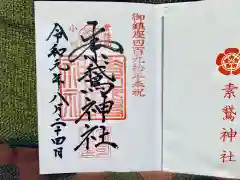 御鎮座四百九拾年奉祝
素鵞神社
令和元年八月二十四日
素鵞神社